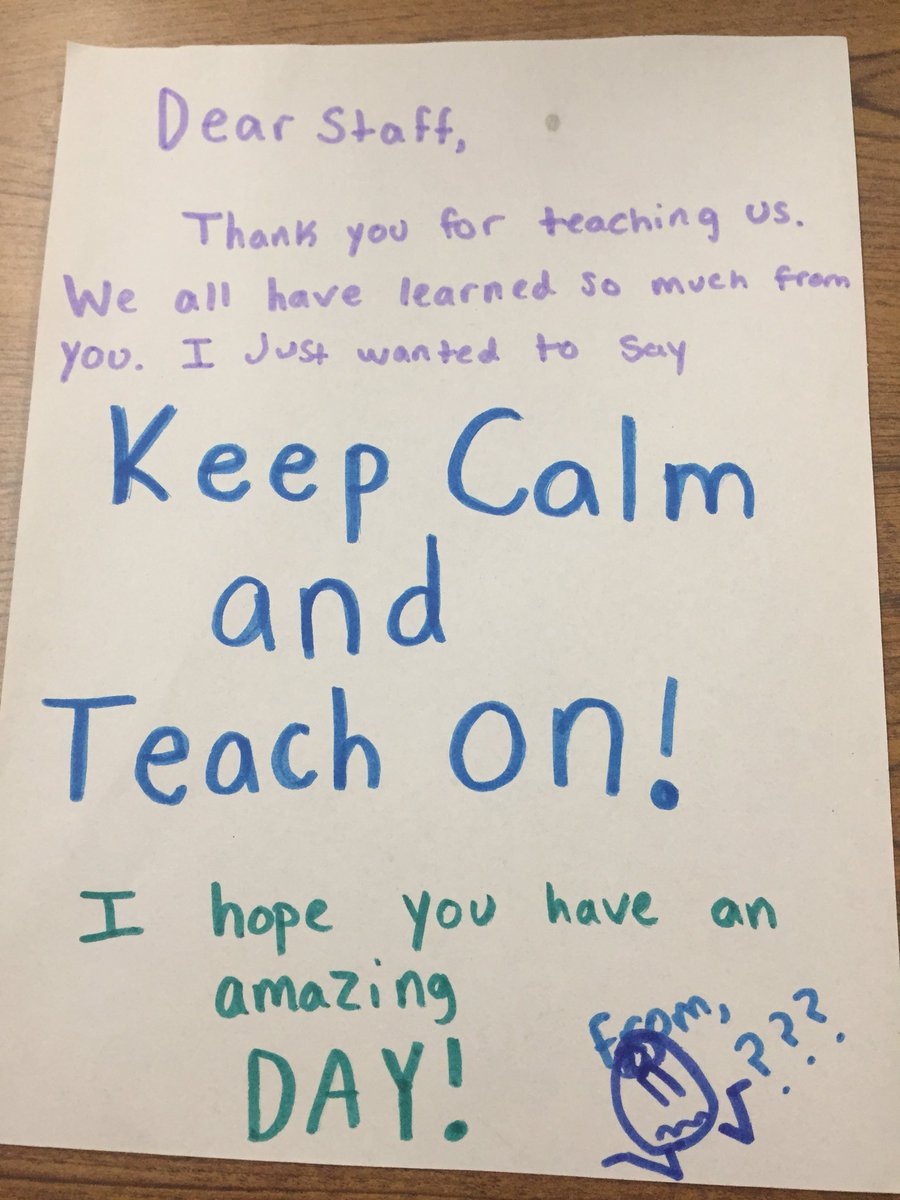 Dear Staff,
Thank you for teaching us.
We all have learned so much from
you. I Just wanted to say
Keep Calm
and
Teach on!
I hope you have an
amazing
DAY!
from,
???